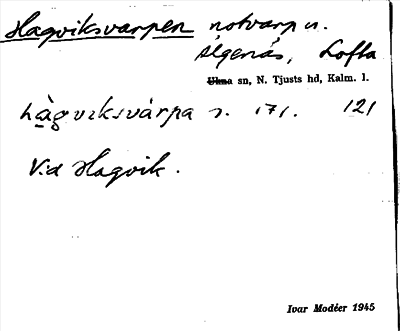 Hagviksvarpen notvarp u.
Älgenäs, Lofta
Ukna sn, N. Tjusts hd, Kalm. l.
hàgviksvárpa 121
V:d Hagvik.
Ivar Modéer 1945